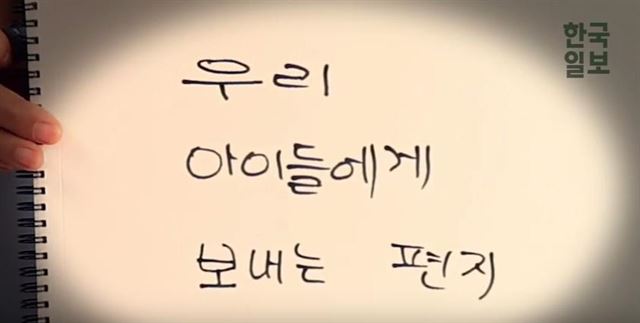 한국
일보
우리
아이들에게
보내는 편지